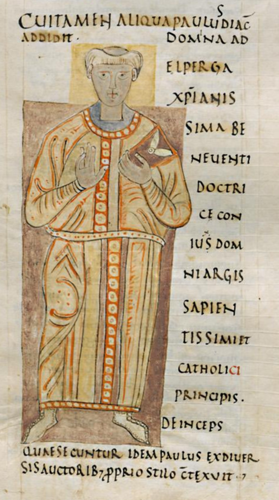 CUITAMEN ALIQUA PAULUS DIAC̄
ADDIDIT. DOMNA AD
ELPERGA
XP̄IANIS
SIMA BE
NEUENTI
DOCTRI
CE CON
IUḠ DOM
NI ARGIS
SAPIEN
TISSIMI ET
CATHOLICI
PRINCIPIS.
DEINCEPS
QUAE SECUNTUR IDEM PAULUS EX DIUER
SIS AUCTORIB; PROPRIO STILO CTEXUIT